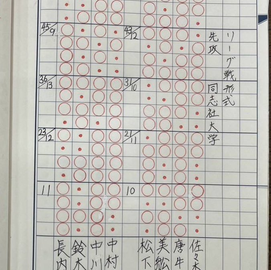 リーグ戦形式
先攻 同志社大学
45/9
43/12
35/13
31/10
23/12
21/11
11
10
佐々木
唐牛
美松
松下
中村
中川
鈴木
長内